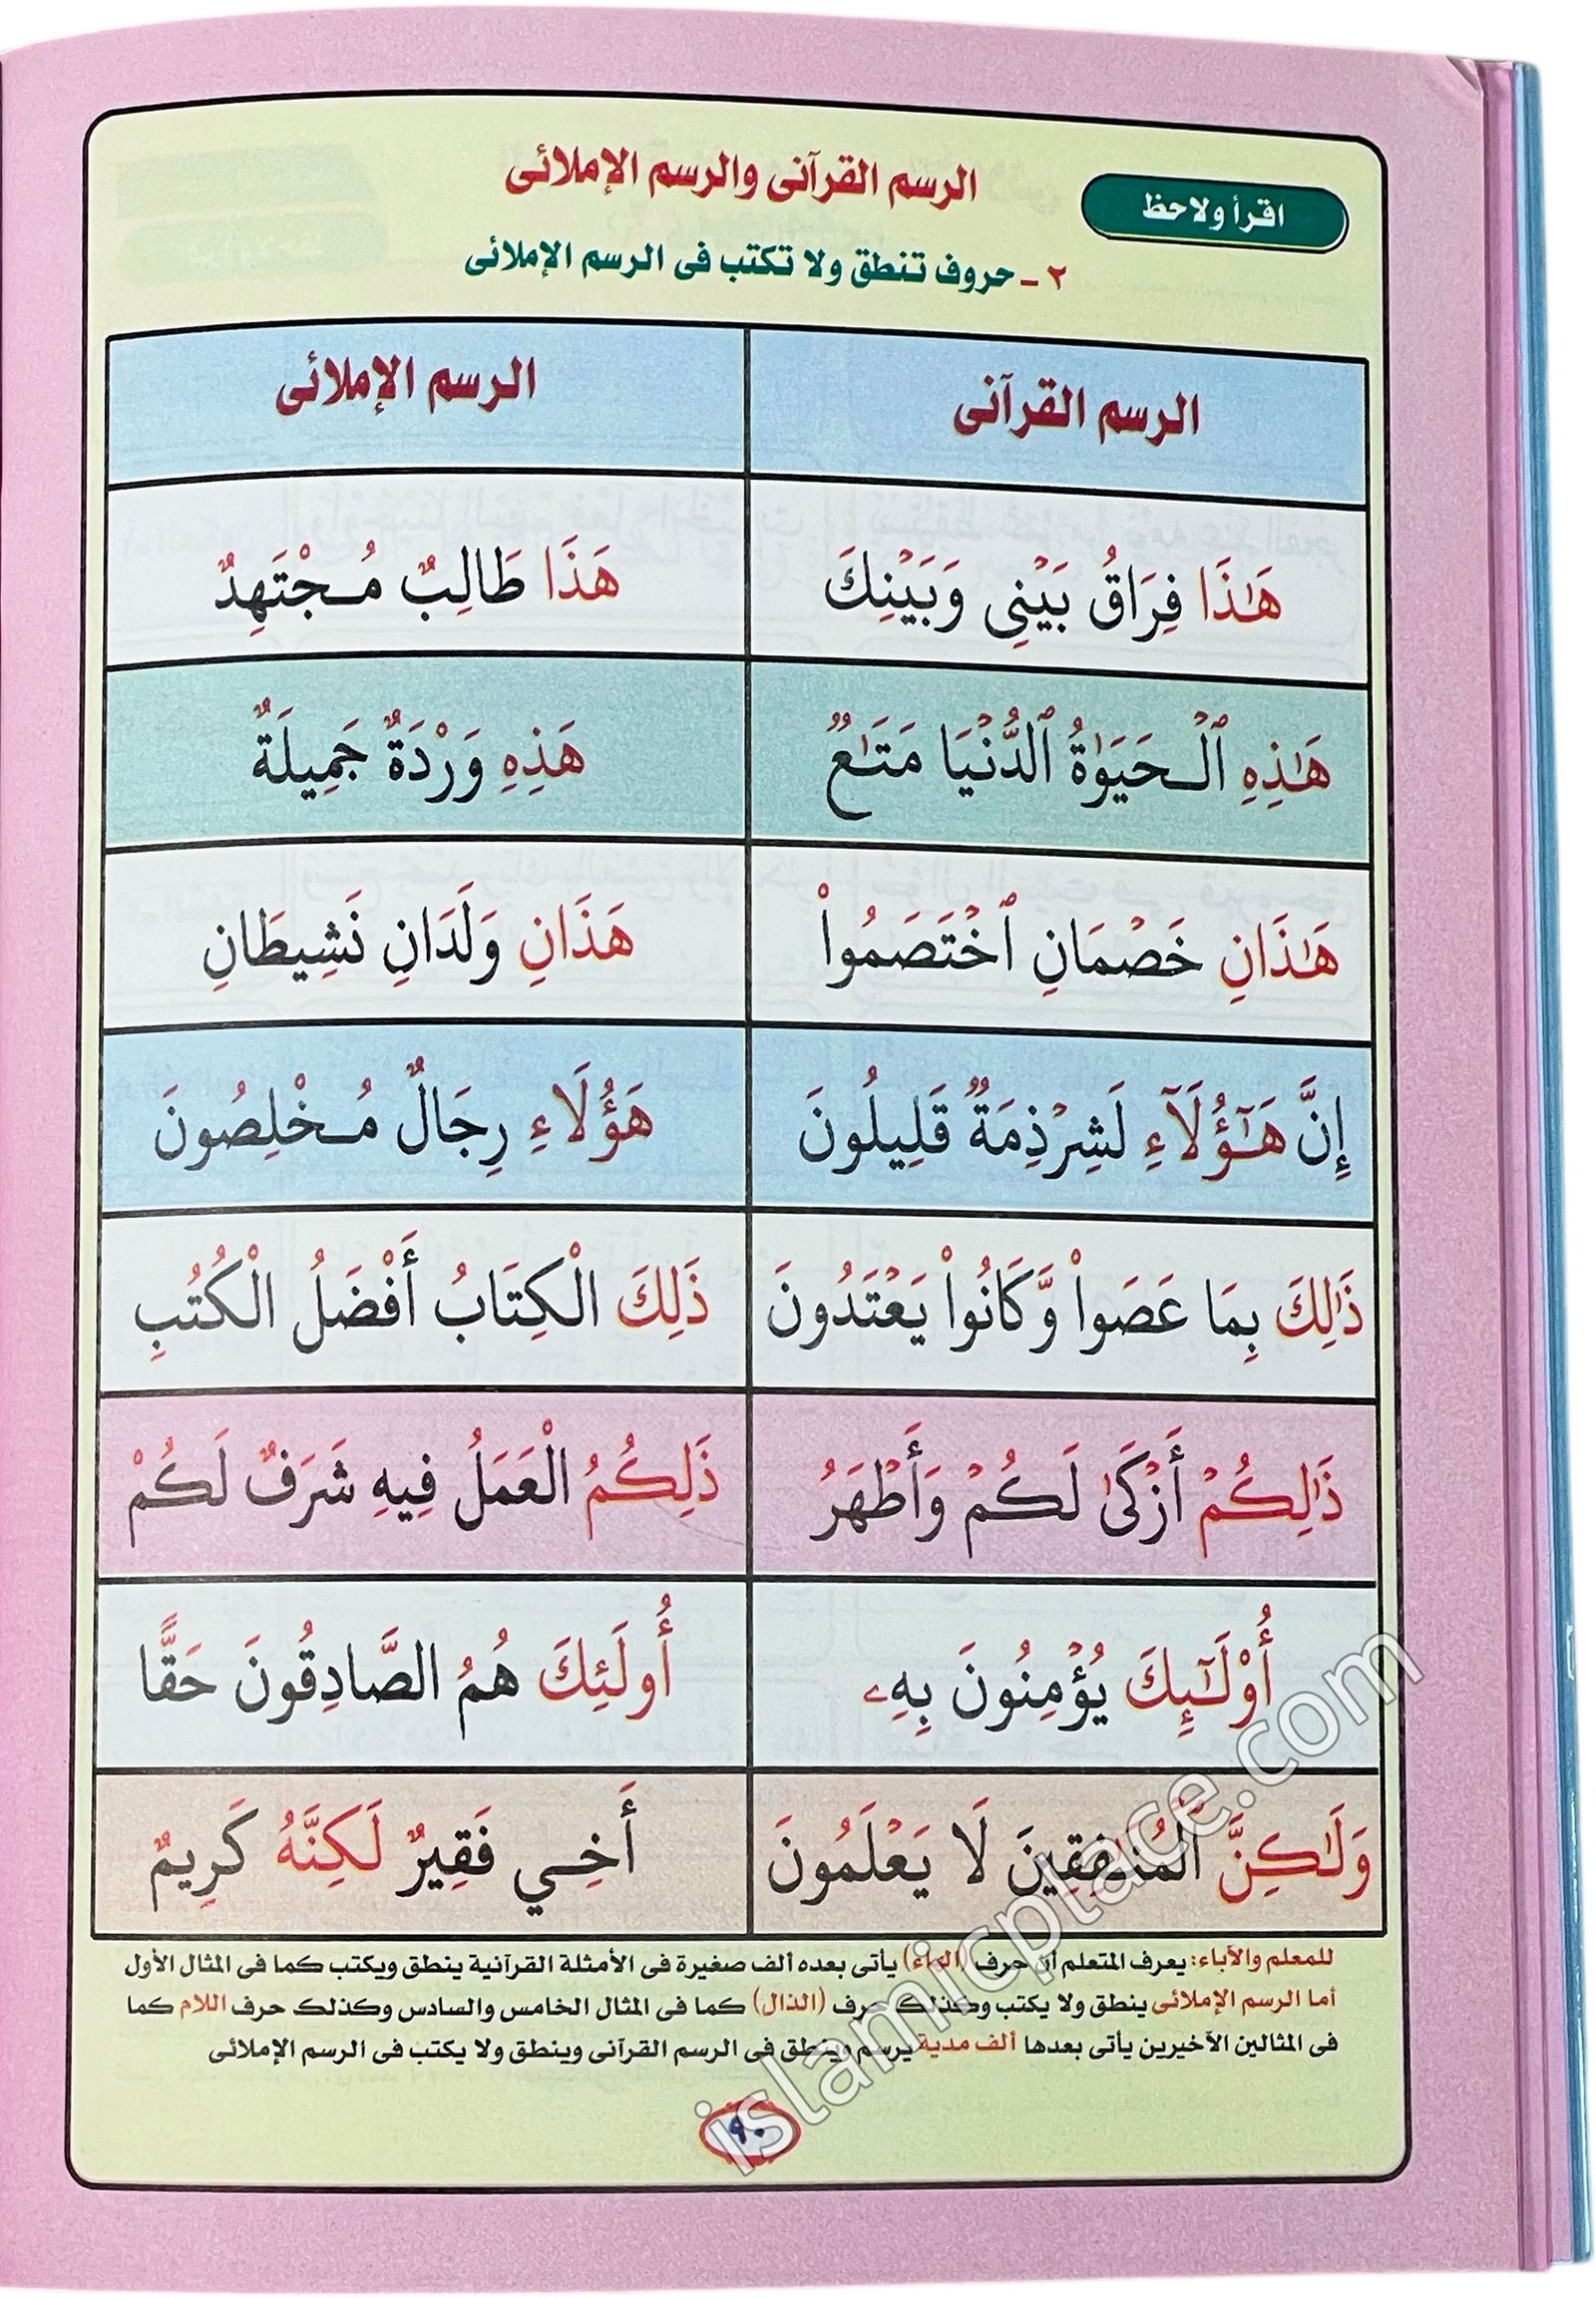 اقرأ ولاحظ
الرسم القرآنى والرسم الإملائى
٢ - حروف تنطق ولا تكتب فى الرسم الإملائى
الرسم القرآنى
الرسم الإملائى
هَٰذَا فِرَاقُ بَيْنِى وَبَيْنِكَ
هَذَا طَالِبٌ مُـجْتَهِدٌ
هَٰذِهِ ٱلْـحَيَوٰةُ ٱلدُّنْيَا مَتَـٰعٌ
هَذِهِ وَرْدَةٌ جَمِيلَةٌ
هَٰذَانِ خَصْمَانِ ٱخْتَصَمُوا۟
هَذَانِ وَلَدَانِ نَشِيطَانِ
إِنَّ هَـٰٓؤُلَآءِ لَشِرْذِمَةٌ قَلِيلُونَ
هَؤُلَاءِ رِجَالٌ مُـخْلِصُونَ
ذَٰلِكَ بِمَا عَصَوا۟ وَّكَانُوا۟ يَعْتَدُونَ
ذَلِكَ الْكِتَابُ أَفْضَلُ الْكُتُبِ
ذَٰلِكُمْ أَزْكَىٰ لَـكُمْ وَأَطْهَرُ
ذَلِكُمُ الْعَمَلُ فِيهِ شَرَفٌ لَـكُمْ
أُو۟لَـٰٓئِكَ يُؤْمِنُونَ بِهِۦ
أُولَئِكَ هُمُ الصَّادِقُونَ حَقًّا
وَلَـٰكِنَّ ٱلْمُنَـٰفِقِينَ لَا يَعْلَمُونَ
أَخِـي فَقِيرٌ لَـكِنَّهُ كَرِيمٌ
للمعلم والآباء: يعرف المتعلم أن حرف (الهاء) يأتى بعده ألف صغيرة فى الأمثلة القرآنية ينطق ويكتب كما فى المثال الأول
أما الرسم الإملائى ينطق ولا يكتب وكذلك حرف (الذال) كما فى المثال الخامس والسادس وكذلك حرف اللام كما
فى المثالين الآخيرين يأتى بعدها ألف مدية يرسم وينطق فى الرسم القرآنى وينطق ولا يكتب فى الرسم الإملائى
٩٠
islamicplace.com